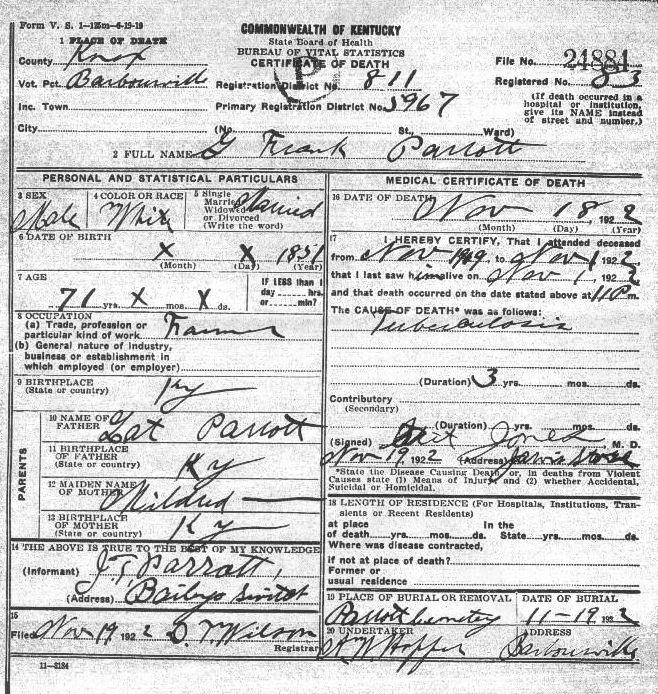 Form V. S. 1—125m—6-19-19
COMMONWEALTH OF KENTUCKY
State Board of Health
BUREAU OF VITAL STATISTICS
CERTIFICATE OF DEATH
1 PLACE OF DEATH
County Knox
Vot. Pct. Barbourville
Inc. Town
City
Registration District No. 811
Primary Registration District No. 5967
(No. St., Ward)
File No. 24884
Registered No. 83
(If death occurred in a
hospital or institution,
give its NAME instead
of street and number.)
P
2 FULL NAME G Frank Parrott
PERSONAL AND STATISTICAL PARTICULARS
3 SEX
Male
4 COLOR OR RACE
White
5 Single
Married
Widowed
or Divorced
(Write the word)
Married
6 DATE OF BIRTH
x x 1851
(Month) (Day) (Year)
7 AGE
71 yrs. x mos. x ds.
IF LESS than 1
day ____ hrs.
or ____ min?
8 OCCUPATION
(a) Trade, profession or
particular kind of work Farmer
(b) General nature of industry,
business or establishment in
which employed (or employer)
9 BIRTHPLACE
(State or country) Ky
PARENTS
10 NAME OF
FATHER
Lat Parrott
11 BIRTHPLACE
OF FATHER
(State or country) Ky
12 MAIDEN NAME
OF MOTHER
Mildred
13 BIRTHPLACE
OF MOTHER
(State or country) Ky
14 THE ABOVE IS TRUE TO THE BEST OF MY KNOWLEDGE
(Informant) J T Parrott
(Address) Baileys Switch
15
Filed Nov 19, 1922 Wilson
Registrar
11—3184
MEDICAL CERTIFICATE OF DEATH
16 DATE OF DEATH
Nov 18, 1922
(Month) (Day) (Year)
17 I HEREBY CERTIFY, That I attended deceased
from Nov 1919, to Nov 1 1922
that I last saw him alive on Nov 1 1922
and that death occurred on the date stated above at 11 P m.
The CAUSE OF DEATH* was as follows:
Tuberculosis
(Duration) 3 yrs. mos. ds.
Contributory
(Secondary)
(Duration) yrs. mos. ds.
(Signed) Jones M. D.
Nov 19, 1922 (Address) Jarvis Store
*State the Disease Causing Death, or, in deaths from Violent
Causes state (1) Means of Injury; and (2) whether Accidental,
Suicidal or Homicidal.
18 LENGTH OF RESIDENCE (For Hospitals, Institutions, Tran-
sients or Recent Residents)
at place In the
of death yrs. mos. ds. State yrs. mos. ds.
Where was disease contracted,
if not at place of death?
Former or
usual residence
19 PLACE OF BURIAL OR REMOVAL
Parrott Cemetery
DATE OF BURIAL
11-19 1922
20 UNDERTAKER
Hopper
ADDRESS
Barbourville